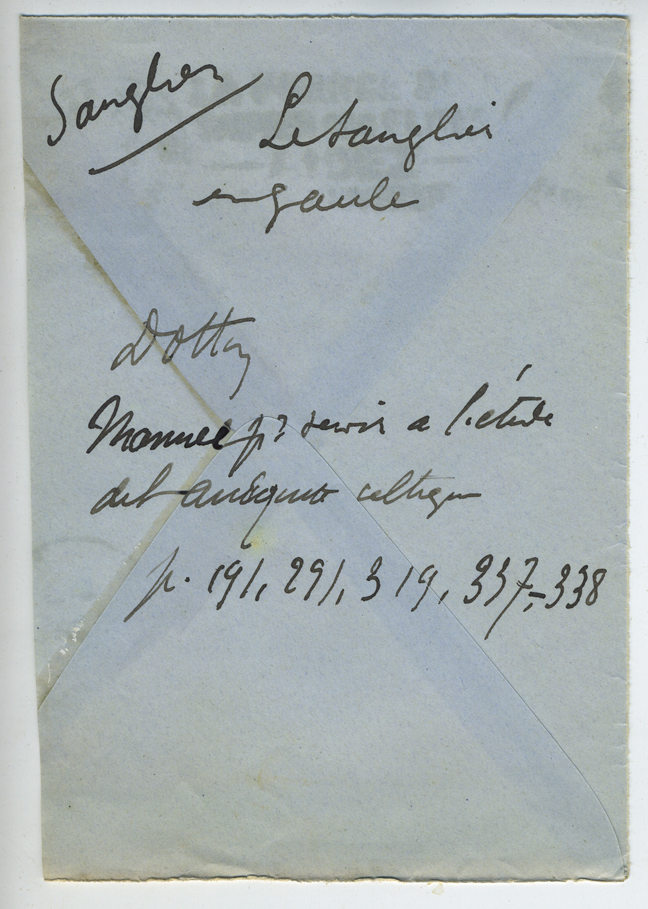 Sanglier
Le sanglier
en gaule
Dottin
Manuel pr servir a l'étude
de l'antiquité celtique
p. 191, 291, 319, 337-338